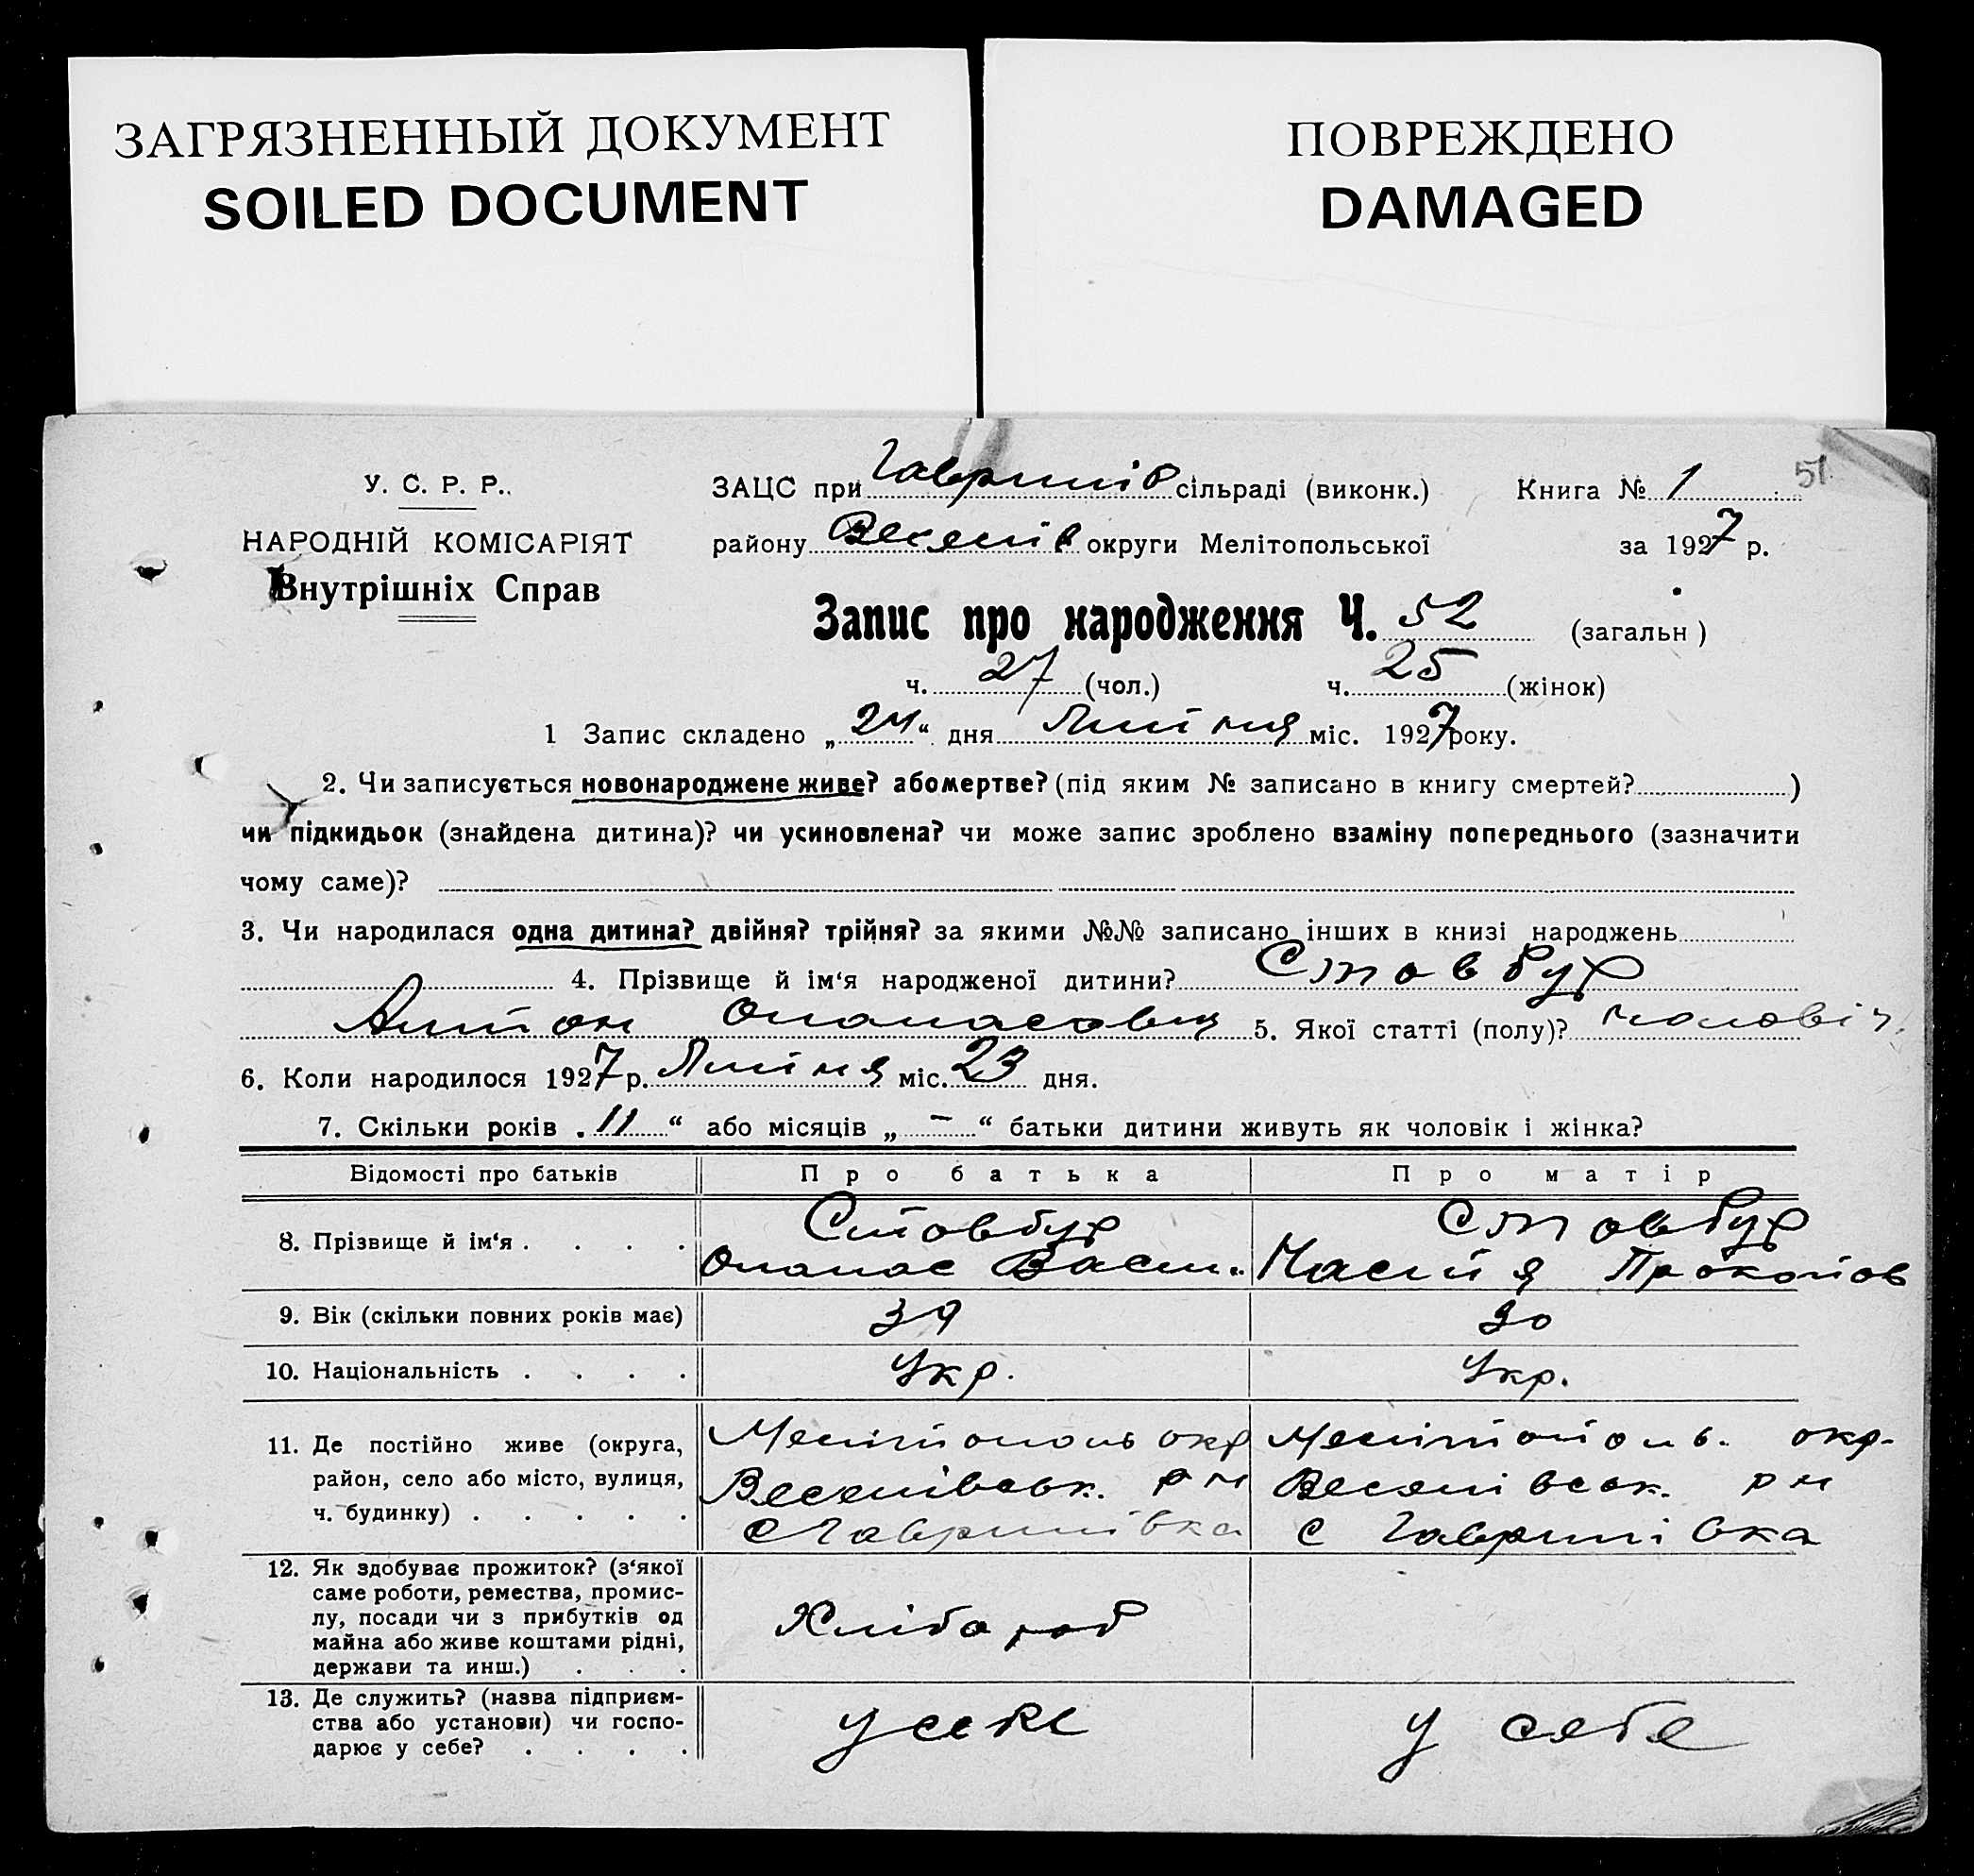 ЗАГРЯЗНЕННЫЙ ДОКУМЕНТ
SOILED DOCUMENT
ПОВРЕЖДЕНО
DAMAGED
51
У. С. Р. Р.
НАРОДНІЙ КОМІСАРІЯТ
Внутрішніх Справ
ЗАЦС при Гаврилів сільраді (виконк.) Книга № 1
району Веселів округи Мелітопольської за 1927 р.
Запис про народження Ч. 52 (загальн)
ч. 27 (чол.) ч. 25 (жінок)
1 Запис складено „24“ дня Липня міс. 1927 року.
2. Чи записується новонароджене живе? або мертве? (під яким № записано в книгу смертей? )
чи підкидьок (знайдена дитина)? чи усиновлена? чи може запис зроблено взаміну попереднього (зазначити
чому саме)?
3. Чи народилася одна дитина? двійня? трійня? за якими №№ записано інших в книзі народжень
4. Прізвище й ім‘я народженої дитини? Стовбур
Антон Опанасович 5. Якої статті (полу)? чоловіч.
6. Коли народилося 1927 р. Липня міс. 23 дня.
7. Скільки років „11“ або місяців „–“ батьки дитини живуть як чоловік і жінка?
Відомості про батьків Про батька Про матір
8. Прізвище й ім‘я . . . . Стовбур Стовбур
Опанас Васил. Прокопов
9. Вік (скільки повних років має) 30
10. Національність . . . . Укр. Укр.
11. Де постійно живе (округа, район, село або місто, вулиця, ч. будинку) . . . . .
Мелітополь окр Мелітополь. окр.
Веселівськ. р н Веселівськ. р н
с Гаврилівка с Гаврилівка
12. Як здобуває прожиток? (з‘якої
саме роботи, ремества, промис-
лу, посади чи з прибутків од
майна або живе коштами рідні,
держави та инш.) . . .
Хлібороб
13. Де служить? (назва підприєм-
ства або установи) чи госпо-
дарює у себе? . . . .
у себе у себе